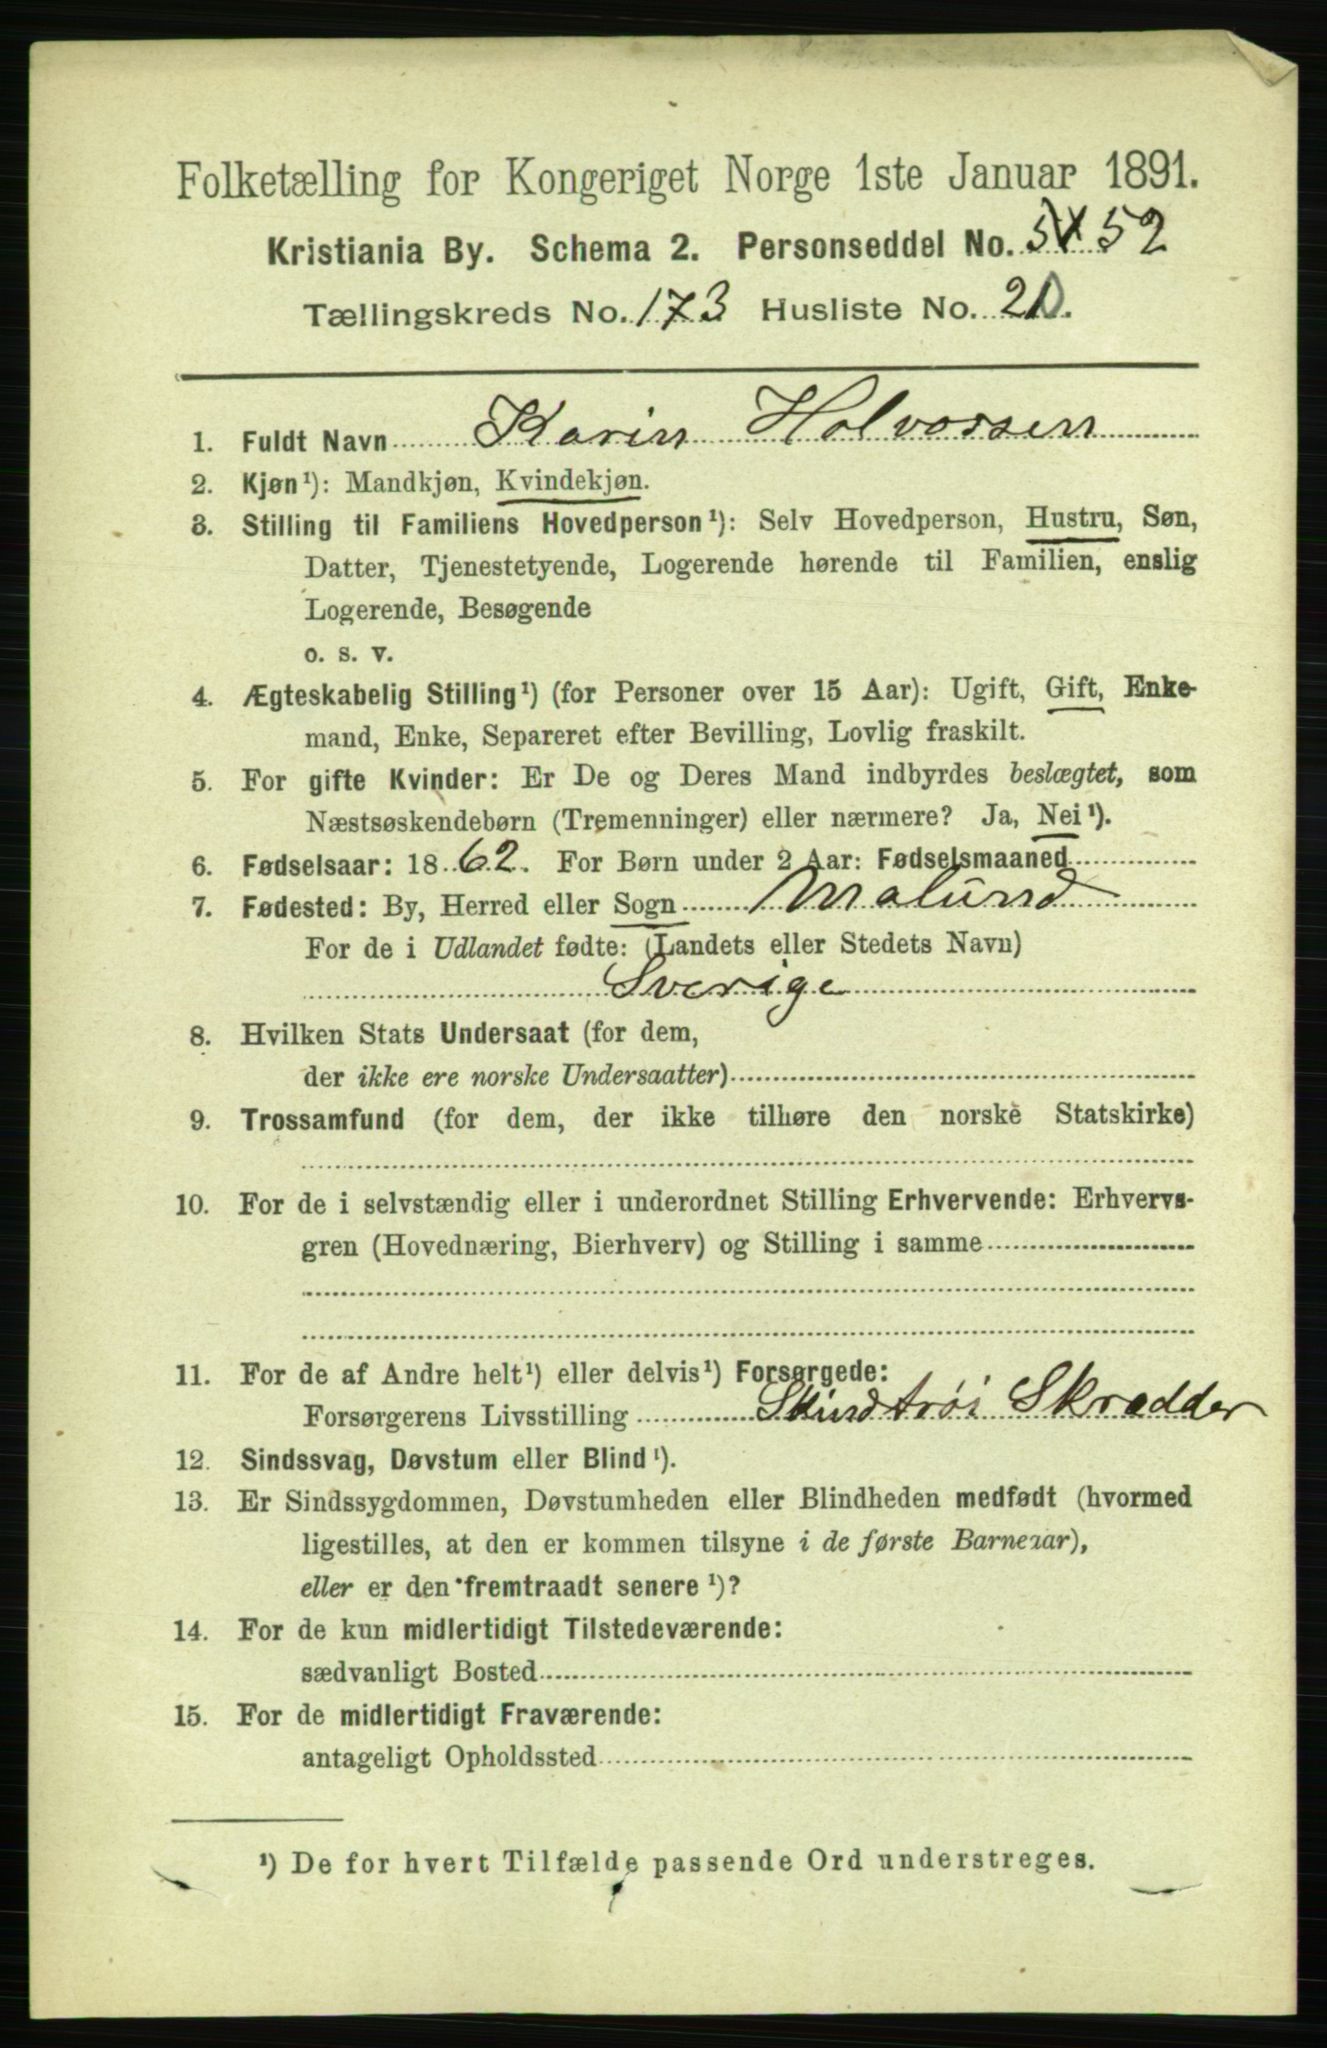 Folketælling for Kongeriget Norge 1ste Januar 1891.
Kristiania By. Schema 2. Personseddel No. 52
Tællingskreds No. 173 Husliste No. 20.
1. Fuldt Navn Karin Halvorsen
2. Kjøn¹): Mandkjøn, Kvindekjøn.
3. Stilling til Familiens Hovedperson¹): Selv Hovedperson, Hustru, Søn,
Datter, Tjenestetyende, Logerende hørende til Familien, enslig
Logerende, Besøgende
o. s. v.
4. Ægteskabelig Stilling¹) (for Personer over 15 Aar): Ugift, Gift, Enke-
mand, Enke, Separeret efter Bevilling, Lovlig fraskilt.
5. For gifte Kvinder: Er De og Deres Mand indbyrdes beslægtet, som
Næstsøskendebørn (Tremenninger) eller nærmere? Ja, Nei¹).
6. Fødselsaar: 1862. For Børn under 2 Aar: Fødselsmaaned
7. Fødested: By, Herred eller Sogn Malund
For de i Udlandet fødte: (Landets eller Stedets Navn)
Sverige
8. Hvilken Stats Undersaat (for dem,
der ikke ere norske Undersaatter)
9. Trossamfund (for dem, der ikke tilhøre den norske Statskirke)
10. For de i selvstændig eller i underordnet Stilling Erhvervende: Erhvervs-
gren (Hovednæring, Bierhverv) og Stilling i samme
11. For de af Andre helt¹) eller delvis¹) Forsørgede:
Forsørgerens Livsstilling Skindtrøi Skrædder
12. Sindssvag, Døvstum eller Blind¹).
13. Er Sindssygdommen, Døvstumheden eller Blindheden medfødt (hvormed
ligestilles, at den er kommen tilsyne i de første Barneaar),
eller er den fremtraadt senere¹)?
14. For de kun midlertidigt Tilstedeværende:
sædvanligt Bosted
15. For de midlertidigt Fraværende:
antageligt Opholdssted
¹) De for hvert Tilfælde passende Ord understreges.